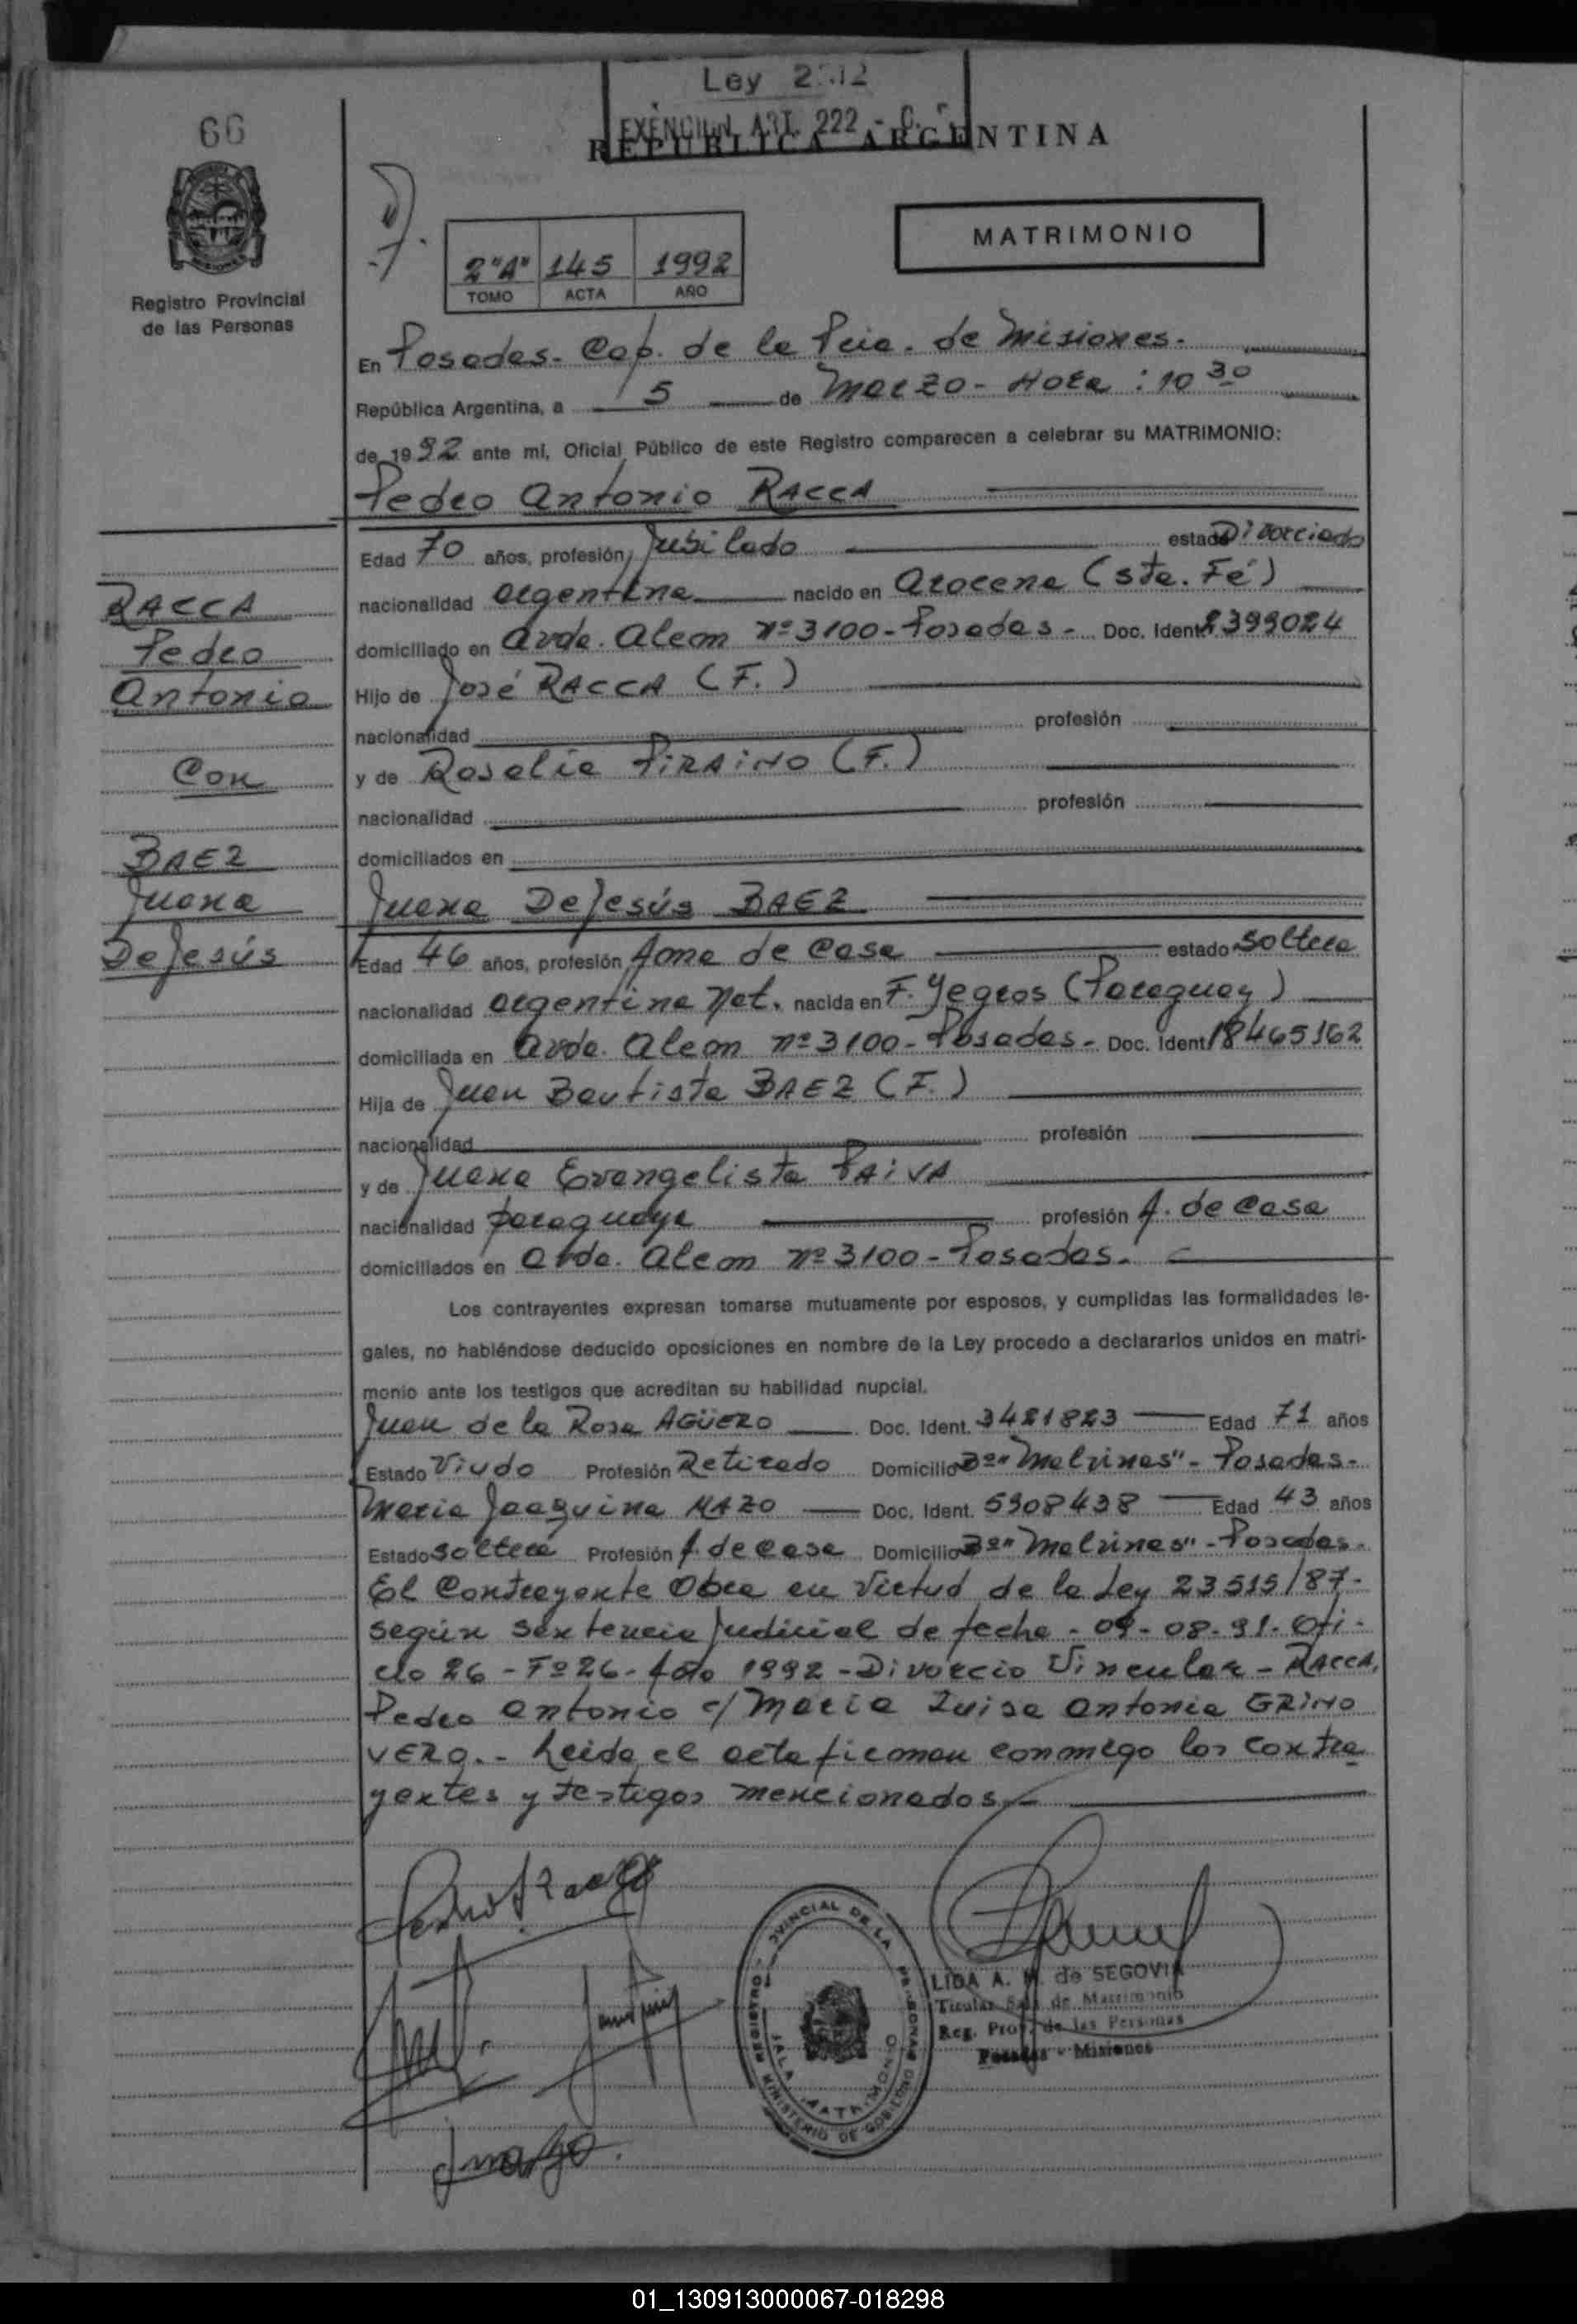 Ley
EXENCION ART. 222 -
66
REPUBLICA ARGENTINA
MATRIMONIO
2"A" 145 1992
TOMO ACTA AÑO
Registro Provincial
de las Personas
En Posadas - Cap. de la Pcia. de Misiones.
República Argentina, a 5 de Marzo - Hora : 10 30
de 1992 ante mí, Oficial Público de este Registro comparecen a celebrar su MATRIMONIO:
Pedro Antonio RACCA
Edad 70 años, profesión Jubilado estado Divorciado
nacionalidad argentina nacido en Arocena (Sta. Fé)
domiciliado en Avda. Alem nº 3100 - Posadas - Doc. Ident. 2399024
Hijo de José RACCA (F.)
nacionalidad profesión
y de Rosalia PiRAiNO (F.)
nacionalidad profesión
domiciliados en
Juana DeJesús BAEZ
Edad 46 años, profesión Ama de Casa estado soltera
nacionalidad argentina Nat. nacida en F. Yegros (Paraguay)
domiciliada en Avda. Alem nº 3100 - Posadas - Doc. Ident. 18465162
Hija de Juan Bautista BAEZ (F.)
nacionalidad profesión
y de Juana Evangelista PAiVA
nacionalidad paraguaya profesión A. de Casa
domiciliados en Avda. Alem nº 3100 - Posadas.
RACCA
Pedro
Antonio
Con
BAEZ
Juana
DeJesús
Los contrayentes expresan tomarse mutuamente por esposos, y cumplidas las formalidades le-
gales, no habiéndose deducido oposiciones en nombre de la Ley procedo a declararlos unidos en matri-
monio ante los testigos que acreditan su habilidad nupcial.
Juan de la Rosa AGÜERO Doc. Ident. 3421823 Edad 71 años
Estado Viudo Profesión Retirado Domicilio Bº "Malvinas" - Posadas -
Maria Joaquina MAZO Doc. Ident. 5908438 Edad 43 años
Estado soltera Profesión A. de Casa Domicilio Bº "Malvinas" - Posadas -
El Contrayente Obra en Virtud de la Ley 23515/87 -
según sentencia judicial de fecha - 09-08-91. Ofi-
cio 26 - Fº 26 - Año 1992 - Divorcio Vincular - RACCA,
Pedro Antonio c/ Maria Luisa Antonia GRiNO
VERO. - Leida el acta firman conmigo los contra
yentes y testigos mencionados.
LIDA A. de SEGOVIA
Titular Sala de Matrimonio
Reg. Prov. de las Personas
Posadas - Misiones
REGISTRO PROVINCIAL DE LAS PERSONAS
MINISTERIO DE GOBIERNO
SALA MATRIMONIO
01_130913000067-018298